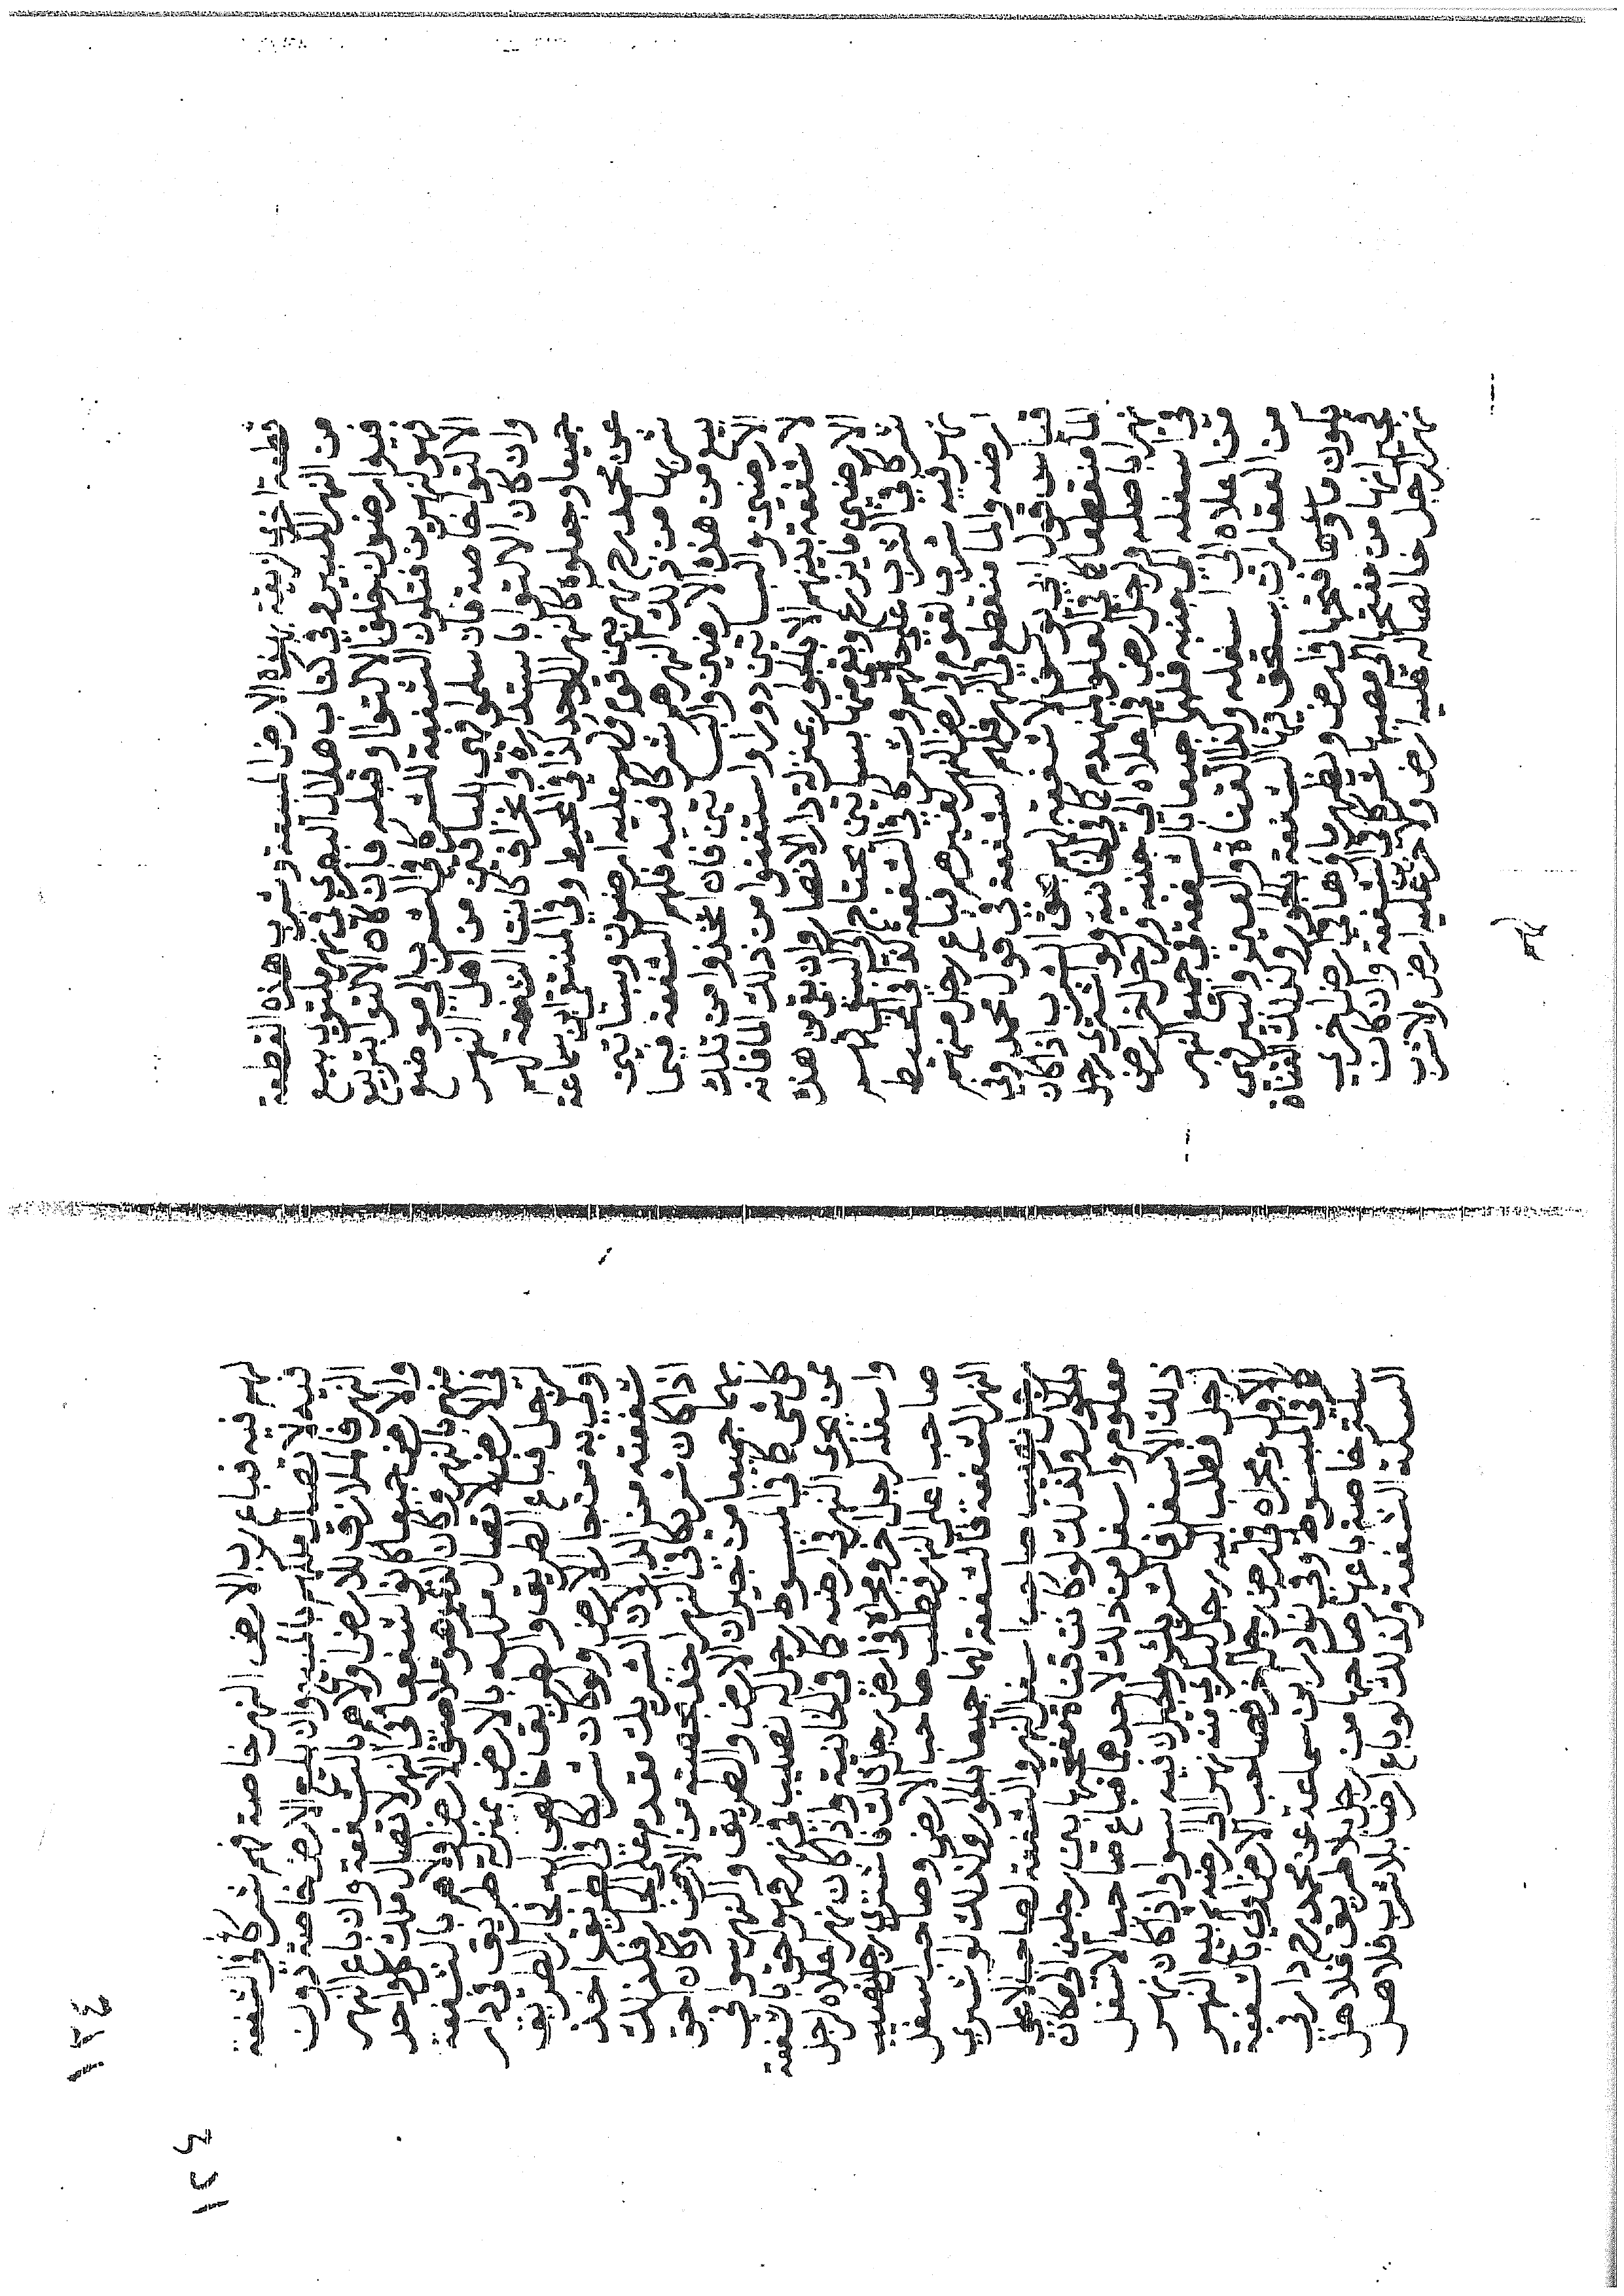 قطعة اخرى لزيقة بهذه الارض المبيعة وشرب هذه القطعة
من النهر الكبير وفي كتاب هلال البصري في نهر ملتوي يبيع
فيه ارضون خلف الالتوا وقبله فان كان الالتوا بتربيع
فهو كنهرين فتكون الشفعة للشركا في الشرب الى موضع
الالتوا خاصة فان سلموا فهي للباقين من اهل النهر
وان كان الالتوا باستدارة وانحراف كانت الشفعة لهم
جميعا وجعلوه كالنهر الواحد كذا في المحيط وفي المنتقى ابن سماعة
عن محمد رح نهر بين قوم ولهم عليه ارضون وبساتين
شربها من ذلك النهر هم شركا فيه فلهم الشفعة فيما
بيع من هذه الارضين والبساتين فان اتخذوا من تلك
الارضين والبساتين دورا واستغنوا من ذلك الما فانه
لا شفعة بينهم الا بالجوار بمنزلة دار الانصار وان بقي من هذه
الارضين ما يزرع وبقي منها بساتين يحتاج الى السقي فهم
شركا في الشرب على حالهم وشركا في الشفعة كذا في المحيط
نهر فيه شرب لقوم وارض النهر لغيرهم فباع رجل منهم
ارضه والما منقطع في النهر فلهم الشفعة في قول محمد وفي
قياس قول ابي يوسف لا شفعة لهم بحق الشرب اذا كان
الما منقطعا كما في العلو المنهدم كما في الخانية ولو اشترى رجل
نهرا باصله ولرجل ارض في اعلاه الى جنبه ولرجل اخر ارض
في اسفله الى جنبه فلهما جميعا بالشفعة في جميع النهر
من اعلاه الى اسفله وكذا القناة والعين والبير فهي
من العقارات يستحق فيها الشفعة بالجوار وكذلك القناة
يكون ماؤها فتحها في ارض ويظهر ماؤها في ارض اخرى
فجيرانها من مفتحها الى مصبها شركا في الشفعة وان كان
نهر لرجل خالصا له عليه ارض ولاخرين عليه ارض ولا شرب
١٢٤
١٢٤
لهم فيه فباع رب الارض النهر خاصة فهم شركا في الشفعة
فيه لاتصال ملكهم بالمبيع وان بيع الارض خاصة دون
النهر فالملازق للارض اولاهم بالشفعة وان باع النهر
والارض جميعا كانوا شفعا في النهر لاتصال ملك كل واحد
منهم بالنهر وكان الذي هو ملاصق الارض اولاهم بالشفعة
في الارض لاتصال ملكه بالارض بمنزلة طريق في دار
لرجل فباع الطريق والطريق خالص له فجار الطريق
اولى به من جار الارض ولو كان شريكا في الطريق اخذ
شفعته من الدار لان الشريك مقدم على الجار فكذلك
اذا كان شريكا في النهر اخذ بحصته من الارض وكان احق
بهما جميعا من جيران الارض والطريق والنهر سوا في
كل شي كما في المبسوط رجل له نصيب في نهر فهو احق بالشفعة
ممن يجري النهر في ارضه كما في الخانية واذا كان نهر اعلاه لرجل
واسفله لرجل اخر ومجراه في ارض رجل ثالث فاشترى رجل نصيب
صاحب اعلى النهر وطلب صاحب الارض وصاحب اسفل
النهر الشفعة فالشفعة لهما جميعا بالجوار وكذلك لو اشترى
رجل نصيب صاحب اسفل النهر والشفعة لصاحب الاعلى
بالجوار وكذلك لو كانت قناة مفتحها بين رجلين الى مكان
معلوم واسفل من ذلك لاحدهما فباع صاحب الاسفل
ذلك الاسفل فالشريك والجيران فيه سوا واذا كان نهر
لرجل فطلب اليه رجل ليكري منه نهرا الى ارضه ثم بيع النهر
الاول ومجراه في ارض رجل اخر فصاحب الارض اولى بالشفعة
كما في المبسوط وفي نوادر ابن سماعة عن محمد رح دار في
سكة خاصة باعها صاحبها من رجل بلا طريق فلاهل
السكة الشفعة وكذلك لو باع ارضا بلا شرب فلاهل